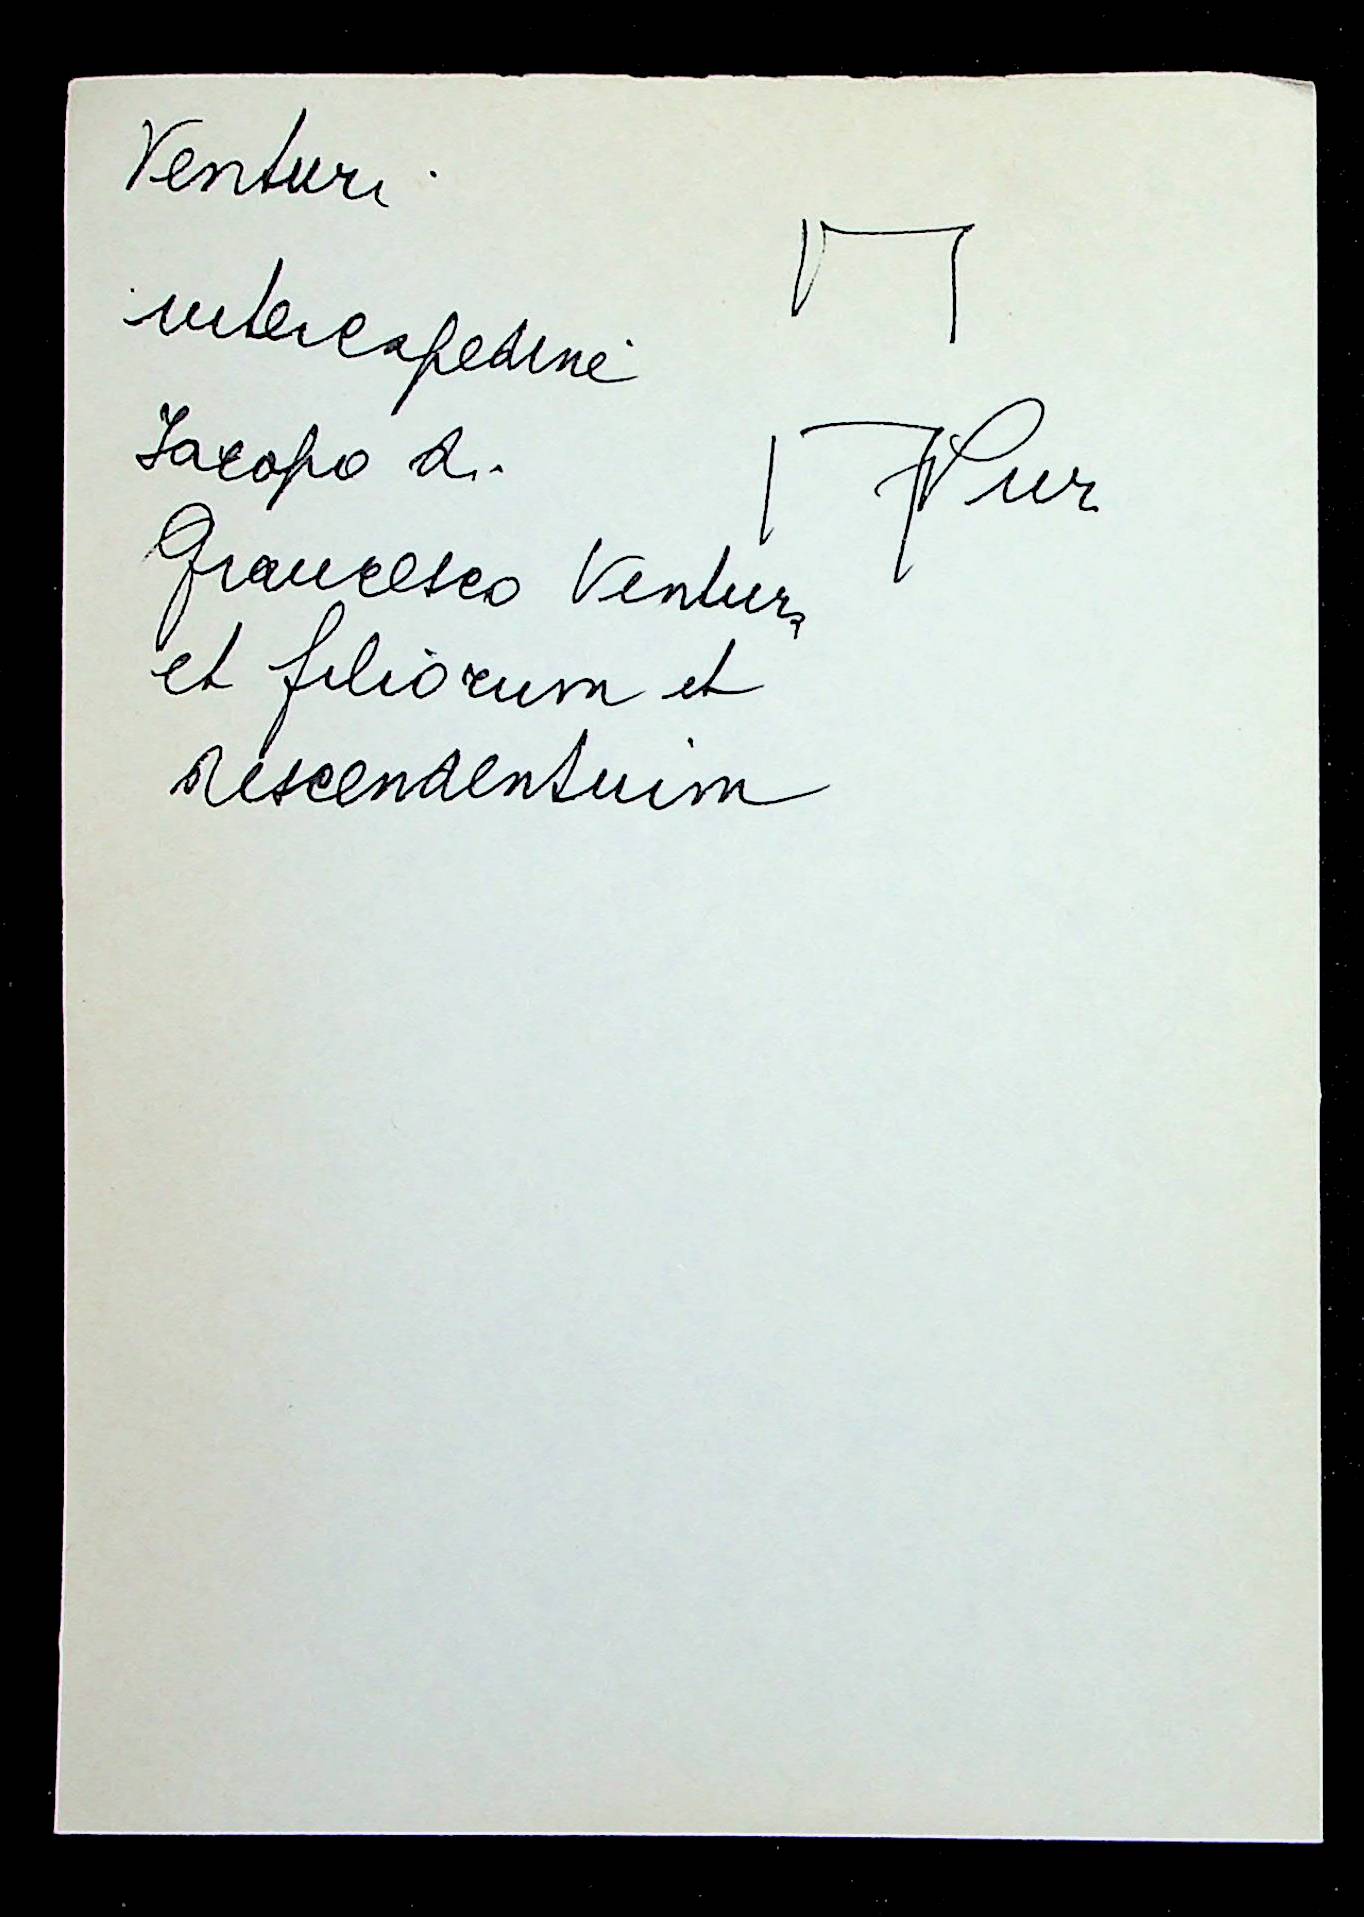 Venturi
intercapedine
Jacopo di
Francesco Venturi
et filiorum et
descendentuim